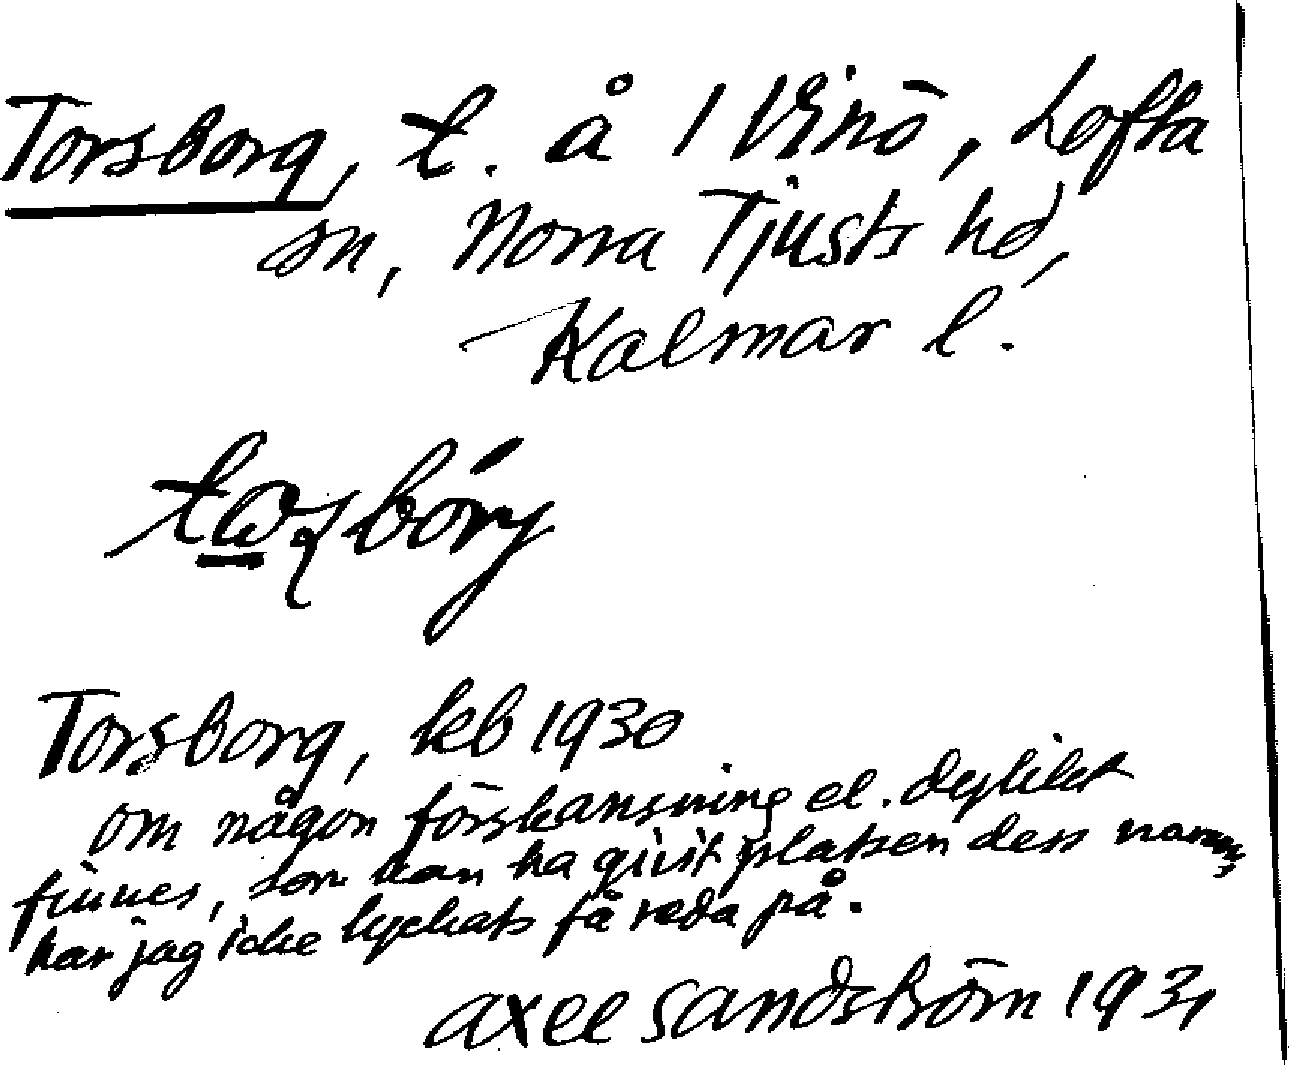 Torsborg, t. å 1 Vinö, Lofta
sn, Norra Tjusts hd,
Kalmar l.
Torsborg, keb 1930
om någon förskansning el. dyslikt
finnes, som kan ha givit platsen dess namn,
har jag icke lyckats få reda på.
Axel Sandström 1931